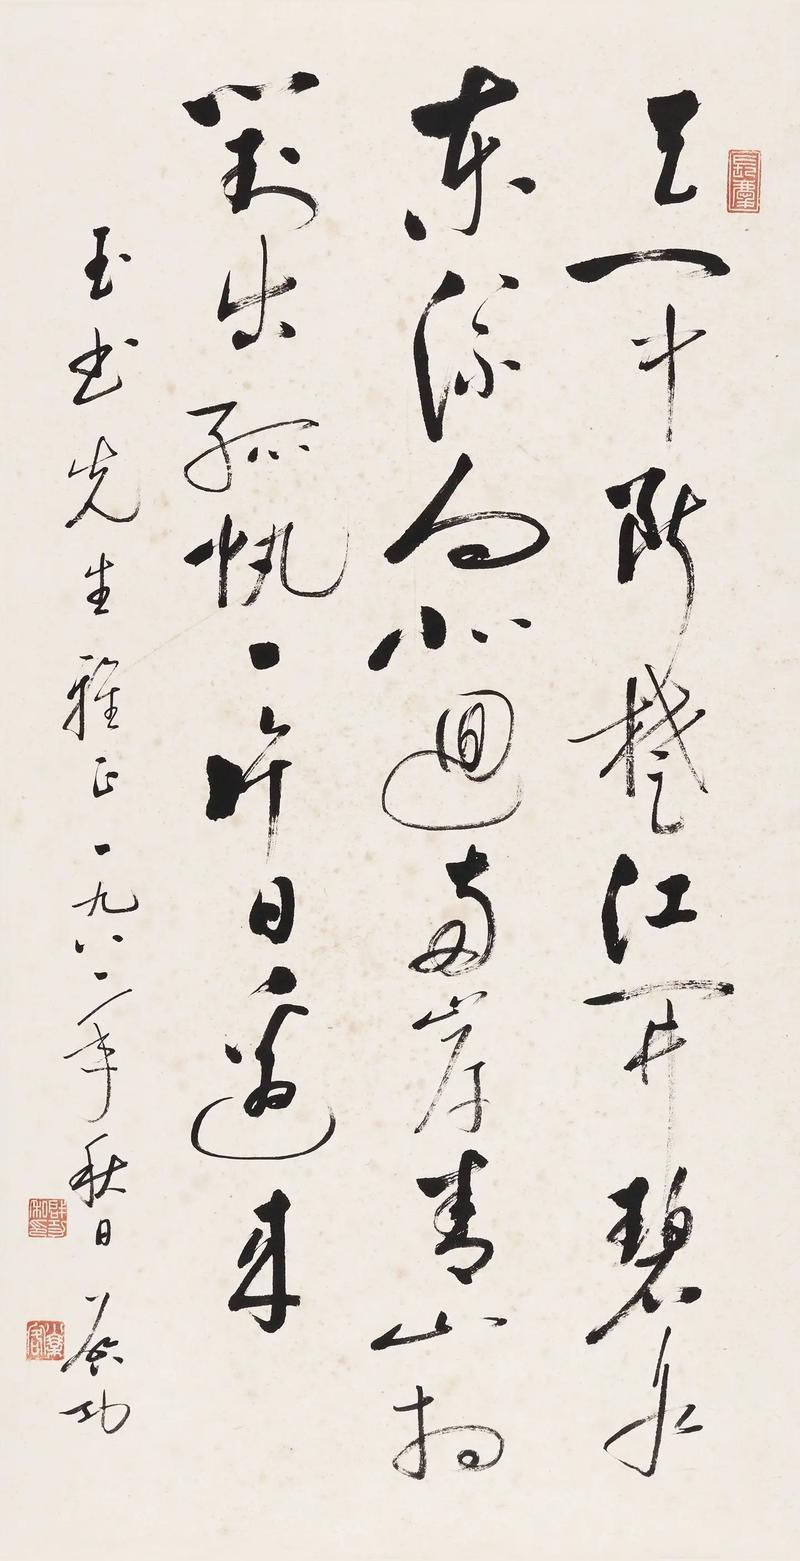 天门中断楚江开碧水
东流向北迴两岸青山相
對出孤帆一片日邊来
玉书先生雅正一九八二年秋日启功